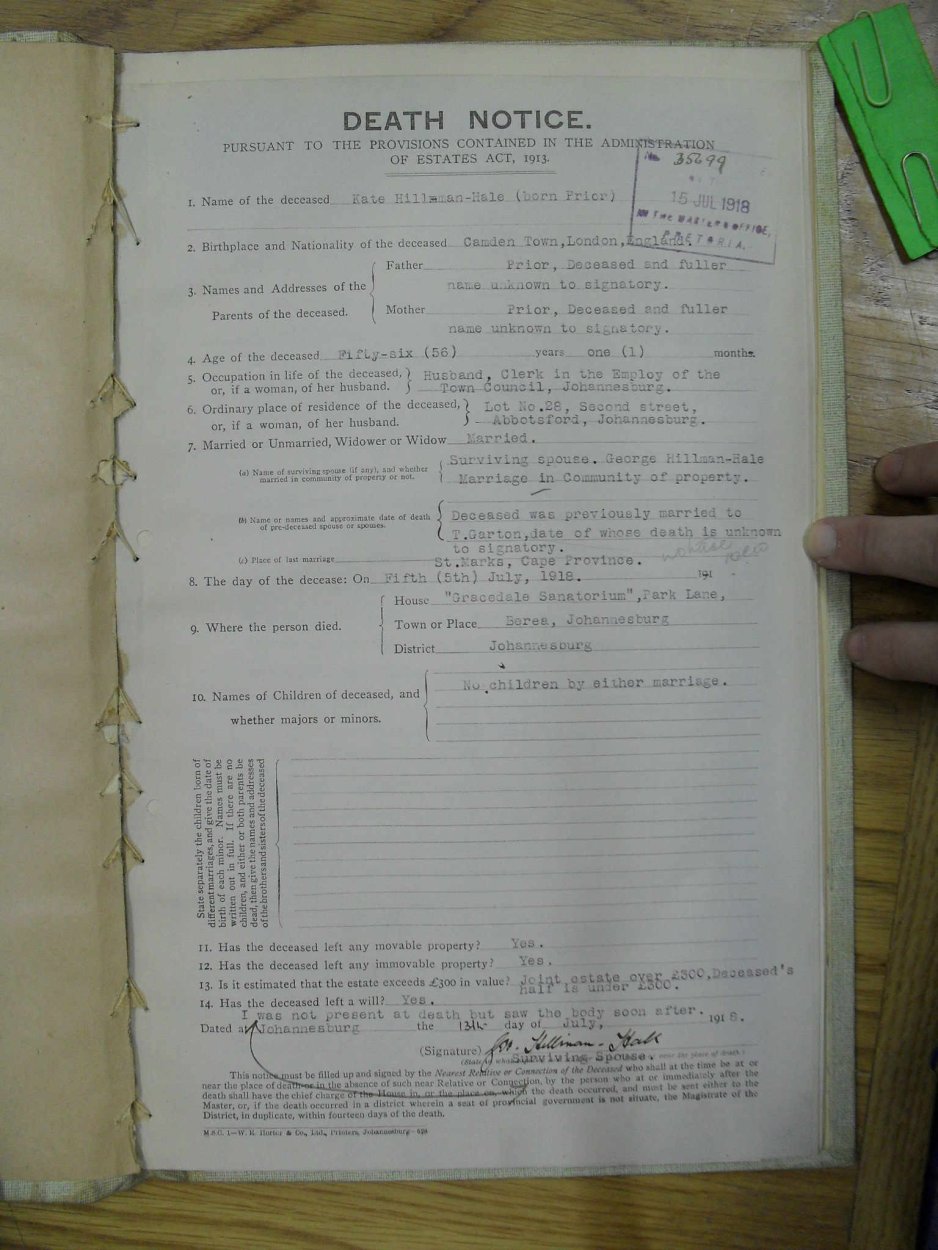 DEATH NOTICE.
PURSUANT TO THE PROVISIONS CONTAINED IN THE ADMINISTRATION
OF ESTATES ACT, 1913.
No. 35699
15 JUL 1918
IN THE MASTERS OFFICE,
PRETORIA.
1. Name of the deceased Kate Hillman-Hale (born Prior)
2. Birthplace and Nationality of the deceased Camden Town, London, England.
3. Names and Addresses of the Parents of the deceased.
Father Prior, Deceased and fuller
name unknown to signatory.
Mother Prior, Deceased and fuller
name unknown to signatory.
4. Age of the deceased Fifty-six (56) years one (1) months.
5. Occupation in life of the deceased, Husband, Clerk in the Employ of the
or, if a woman, of her husband. Town Council, Johannesburg.
6. Ordinary place of residence of the deceased, Lot No.28, Second street,
or, if a woman, of her husband. Abbotsford, Johannesburg.
7. Married or Unmarried, Widower or Widow Married.
(a) Name of surviving spouse (if any), and whether married in community of property or not.
Surviving spouse. George Hillman-Hale
Marriage in Community of property.
(b) Name or names and approximate date of death of pre-deceased spouse or spouses.
Deceased was previously married to
T.Garton, date of whose death is unknown
to signatory.
(c) Place of last marriage St.Marks, Cape Province.
8. The day of the decease: On Fifth (5th) July, 1918. 191
9. Where the person died.
House "Gracedale Sanatorium", Park Lane,
Town or Place Berea, Johannesburg
District Johannesburg
10. Names of Children of deceased, and
whether majors or minors.
No children by either marriage.
State separately the children born of
different marriages, and give the date of
birth of each minor. Names must be
written out in full. If there are no
children, and either or both parents be
dead, then give the names and addresses
of the brothers and sisters of the deceased
11. Has the deceased left any movable property? Yes.
12. Has the deceased left any immovable property? Yes.
13. Is it estimated that the estate exceeds £300 in value? Joint estate over £300, Deceased's
half is under £300.
14. Has the deceased left a will? Yes.
I was not present at death but saw the body soon after.
Dated at Johannesburg the 13th day of July, 1918.
(Signature) Geo. Hillman-Hale
Surviving Spouse.
This notice must be filled up and signed by the Nearest Relative or Connection of the Deceased who shall at the time be at or
near the place of death or in the absence of such near Relative or Connection, by the person who at or immediately after the
death shall have the chief charge of the House in, or the place on, which the death occurred, and must be sent either to the
Master, or, if the death occurred in a district wherein a seat of provincial government is not situate, the Magistrate of the
District, in duplicate, within fourteen days of the death.
M.S.C. 1—W. E. Hortor & Co., Ltd., Printers, Johannesburg